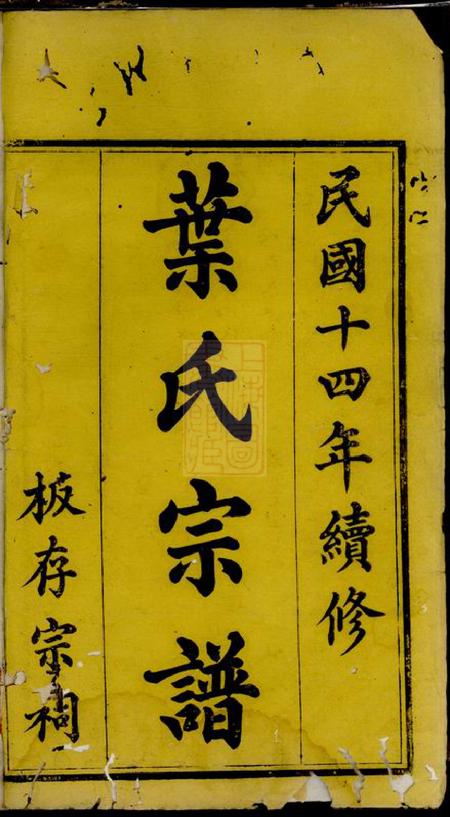 民國十四年續修
葉氏宗譜
板存宗祠